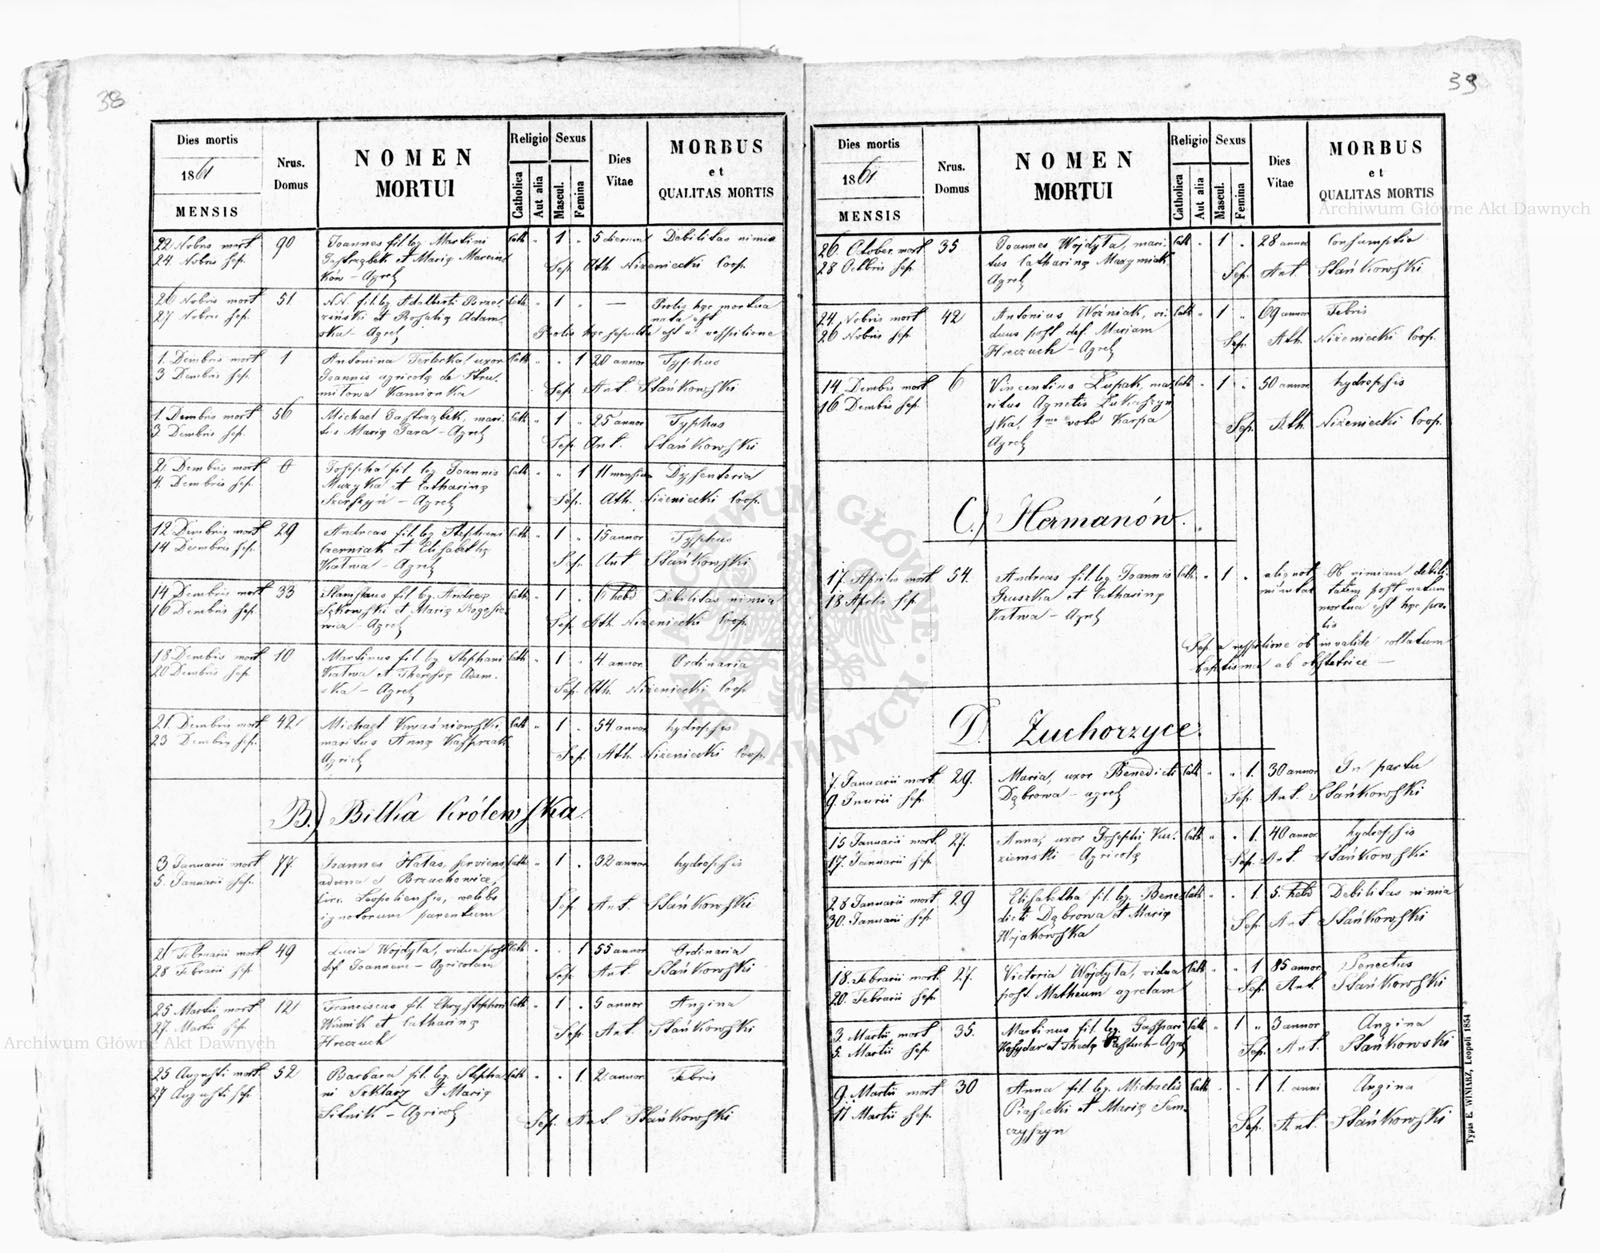 38
Dies mortis
1861
MENSIS
Nrus.
Domus
NOMEN
MORTUI
Religio
Catholica
Aut alia
Sexus
Mascul.
Femina
Dies
Vitae
MORBUS
et
QUALITAS MORTIS
22 Nobris mort 90 Joannes fil. leg. Martini Cath " 1 " 5 dierum Debilitas nimia
24 Nobris sep. Jastrzębek et Marię Marcin-
ków - Agrelę Sep. Ath Nizeniecki Coop.
26 Nobris mort 51 NN. fil. leg. Adalberti Cath " 1 " — Proles hęc mortua
27 Nobris sep. et Rosalię Adam- nata est
ska - Agrelę Proles hęc sepulta est a vespilione
1. Dembris mort 1 Antonina uxor Cath " " 1 20 annor Typhus
3 Dembris sep. Joannis agricolę de Stru-
milowa Kamionka Sep. Ant Stańkowski
1. Dembris mort 56 Michael Jastrzębek, mari- Cath " 1 " 25 annor Typhus
3. Dembris sep. tus Marię Fara - Agrelę
Sep. Ant. Stańkowski
2. Dembris mort 0 Josepha fil. leg. Joannis Cath " " 1 11 mensium Dysenteria
4. Dembris sep. Muzyka et Catharinę
Agrelę Sep. Ath. Nizeniecki Coop.
12 Dembris mort 29 Andreas fil. leg. Stephani Cath " 1 " 15 annor Typhus
14 Decembris sep. Czerniak et Elisabethę
Kalwa - Agrelę Sep. Ant Stańkowski
14 Dembris mort 33 Stanislaus fil. leg. Andreę Cath " 1 " 6 hebd Debilitas nimia
16 Dembris sep. et Marię
Agrelę Sep. Ath Nizeniecki Coop.
18 Dembris mort 10 Martinus fil. leg. Stephani Cath " 1 " 4 annor Ordinaria
20 Dembris sep. Kalwa et Theresię Adam-
ska - Agrelę Sep. Ath. Nizeniecki Coop
21 Dembris mort 42 Michael Kwaśniowski Cath " 1 " 54 annor hydropsis
23 Dembris sep. maritus Annę Kasprzak
Agricolę Sep. Ath. Nizeniecki Coop.
B.) Bilka Królewska.
3 Januarii mort. 77 Joannes Hatas, serviens Cath " 1 " 32 annor hydropsis
5. Januarii sep. advena e Brzuchowice,
Circ. Leopoliensis, cœlebs Sep. Ant. Stańkowski
ignotorum parentum
21 Februarii mort 49 Lucia Wojdyła, vidua post Cath " " 1 55 annor Ordinaria
28 Februarii sep. def Joannem - Agricolam Sep. Ant. Stańkowski
25 Martii mort 12 Franciscus fil. Chrystophori Cath " 1 " 5 annor Angina
27 Martii sep. Winnik et Catharinę
Hreczuch Sep. Ant. Stańkowski
25 Augusti mort. 52 Barbara fil. leg. Stepha- Cath " " 1. 2 annor Febris
27 Augusti sep. ni et Marię
Sitnik - Agricolę Sep. Ant Stańkowski
39
Dies mortis
1861
MENSIS
Nrus.
Domus
NOMEN
MORTUI
Religio
Catholica
Aut alia
Sexus
Mascul.
Femina
Dies
Vitae
MORBUS
et
QUALITAS MORTIS
26. October. mort 35 Joannes Wojdyła, mari- Cath " 1 " 28 annor Consumptio
28 Octbris sep. tus Catharinę Maxymiak
Agrelę Sep. Ant Stańkowski
24. Nobris mort 42 Antonius Woźniak, vi- Cath " 1 " 69 annor Febris
26 Nobris sep. duus post def. Mariam
Hreczuch - Agrelę Sep. Ath. Nizeniecki Coop.
14 Dembris mort 6 Vincentius Łupak, ma- Cath " 1 " 50 annor hydropsis
16 Dembris sep. ritus Agnetis Łukaszyn-
ska, 1mo voto Karpa Sep. Ath Nizeniecki Coop.
Agrelę
C.) Hermanów.
17. Aprilis mort 54. Andreas fil. leg. Joannis Cath " 1 " aliquot Ob nimiam debili-
18 Aprilis sep. Gruszka et Catharinę minutas tatem post natum
Kalwa - Agrelę mortua est hęc pro-
lis
Sep. a vespilione ob invalide collatum
baptisma ab obstetrice —
D. Zuchorzyce.
7. Januarii mort. 29. Maria, uxor Benedicti Cath " " 1. 30 annor In partu
9. Jnuarii sep. Dąbrowa - agrelę Sep. Ant. Stańkowski
15 Januarii mort. 27. Anna, uxor Josephi Ku- Cath " " 1. 40 annor hydropsis
17. Januarii sep. ziemski - Agricolę Sep. Ant Stańkowski
28 Januarii mort. 29 Elisabetha fil. leg. Bene- Cath " " 1. 5. hebd Debilitas nimia
30. Januarii sep. dicti Dąbrowa et Marię
Wojakowska Sep. Ant Stańkowski
18. Februarii mort. 27. Victoria Wojdyła, vidua Cath " " 1 85 annor Senectus
20. Februarii sep. post. Matheum agrelam Sep. Ant. Stańkowski
3. Martii mort 35. Martinus fil. leg. Gaspari Cath " 1 " 3 annor Angina
5. Martii sep. et Theclę Pastuch - Agrelę Sep. Ant. Stańkowski
9. Martii mort 30 Anna fil. leg. Michaelis Cath " " 1 1. anni Angina
11 Martii sep. Piasecki et Marię Sem-
czyszyn Sep. Ant. Stańkowski
Typis E. WINIARZ, Leopoli 1854
Archiwum Główne Akt Dawnych
Archiwum Główne Akt Dawnych
ARCHIWUM GŁÓWNE AKT DAWNYCH